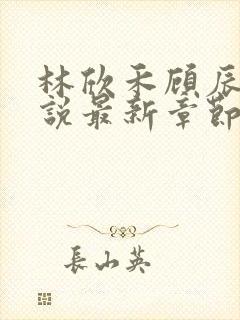 林欣禾顾辰
說最新章節
長山英